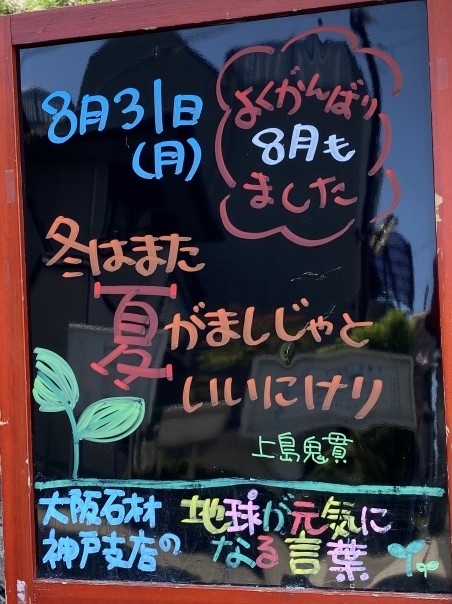 8月31日
(月)
よくがんばり
8月も
ました
冬はまた
夏がましじゃと
いいにけり
上島鬼貫
大阪石材
神戸支店の
地球が元気に
なる言葉